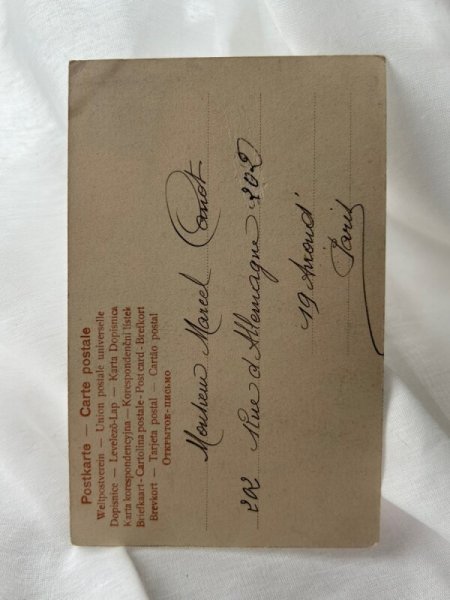 Postkarte — Carte postale
Weltpostverein — Union postale universelle
Dopisnice — Levelező-Lap — Karta Dopisnica
Karta korespondencyjna — Korespondenční listek
Briefkaart - Cartolina postale - Post card - Brefkort
Brevkort — Tarjeta postal — Cartão postal
Открытое-письмо
Monsieur Marcel Canot
202 Rue d'Allemagne 202
19 Arrond'
Paris